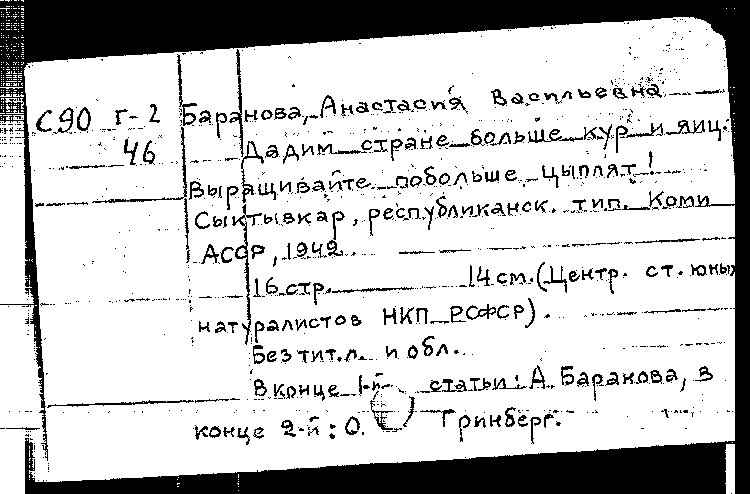 С90 г-2 Баранова, Анастасия Васильевна
46 Дадим стране больше кур и яиц.
Выращивайте побольше цыплят!
Сыктывкар, республиканск. тип. Коми
АССР, 1942.
16 стр. 14 см. (Центр. ст. юных
натуралистов НКП РСФСР).
Без тит. л. и обл.
В конце 1-й статьи: А. Баранова, в
конце 2-й: О. Гринберг.